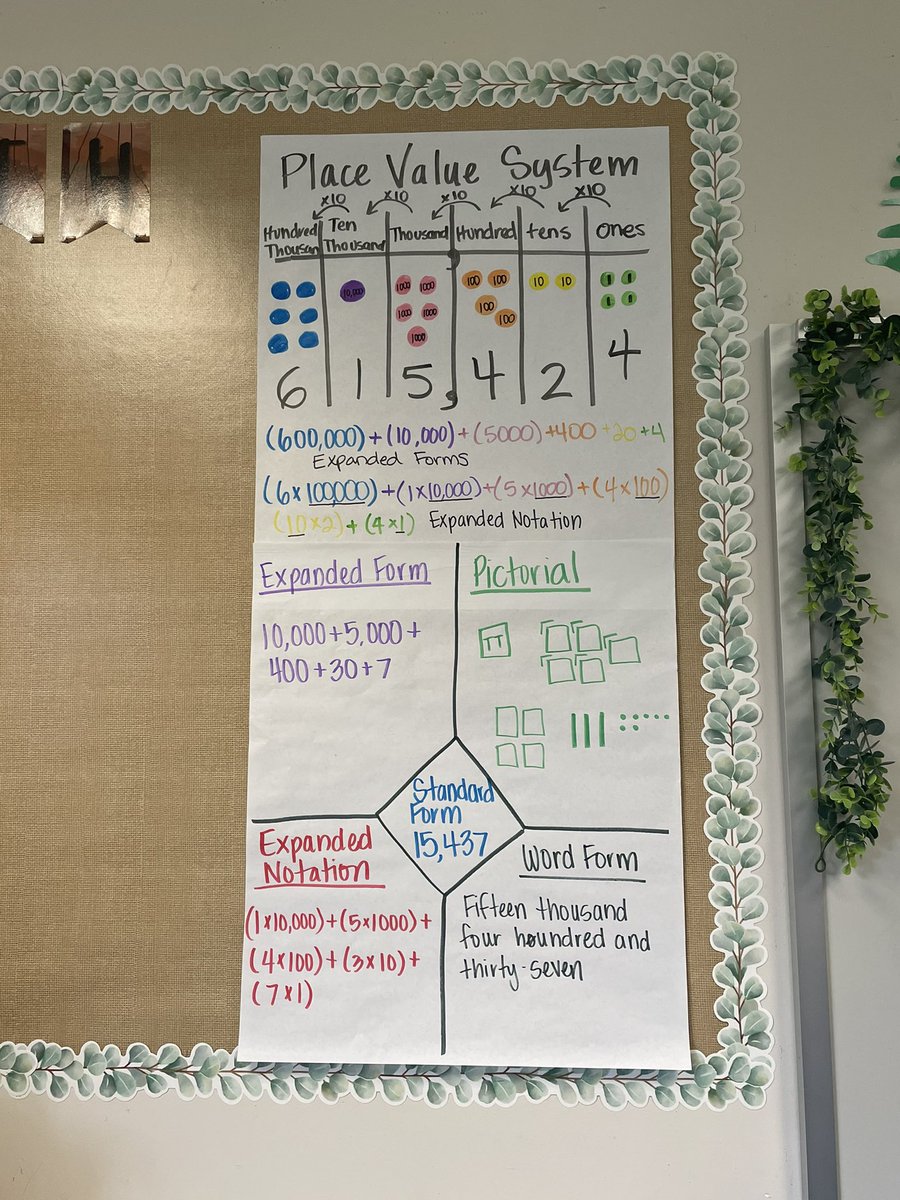 H
Place Value System
x10 x10 x10 x10 x10
Hundred Thousan Ten Thousand Thousand Hundred tens ones
10,000 1000 1000 100 100 10 10 1 1
1000 1000 100 1 1
1000 100
6 1 5, 4 2 4
(600,000)+(10,000)+(5000)+400+20+4
Expanded Forms
(6x100,000)+(1x10,000)+(5x1000)+(4x100)
(10x2)+(4x1) Expanded Notation
Expanded Form
10,000+5,000+
400+30+7
Pictorial
Standard
Form
15,437
Expanded
Notation
(1x10,000)+(5x1000)+
(4x100)+(3x10)+
(7x1)
Word Form
Fifteen thousand
four houndred and
thirty-seven